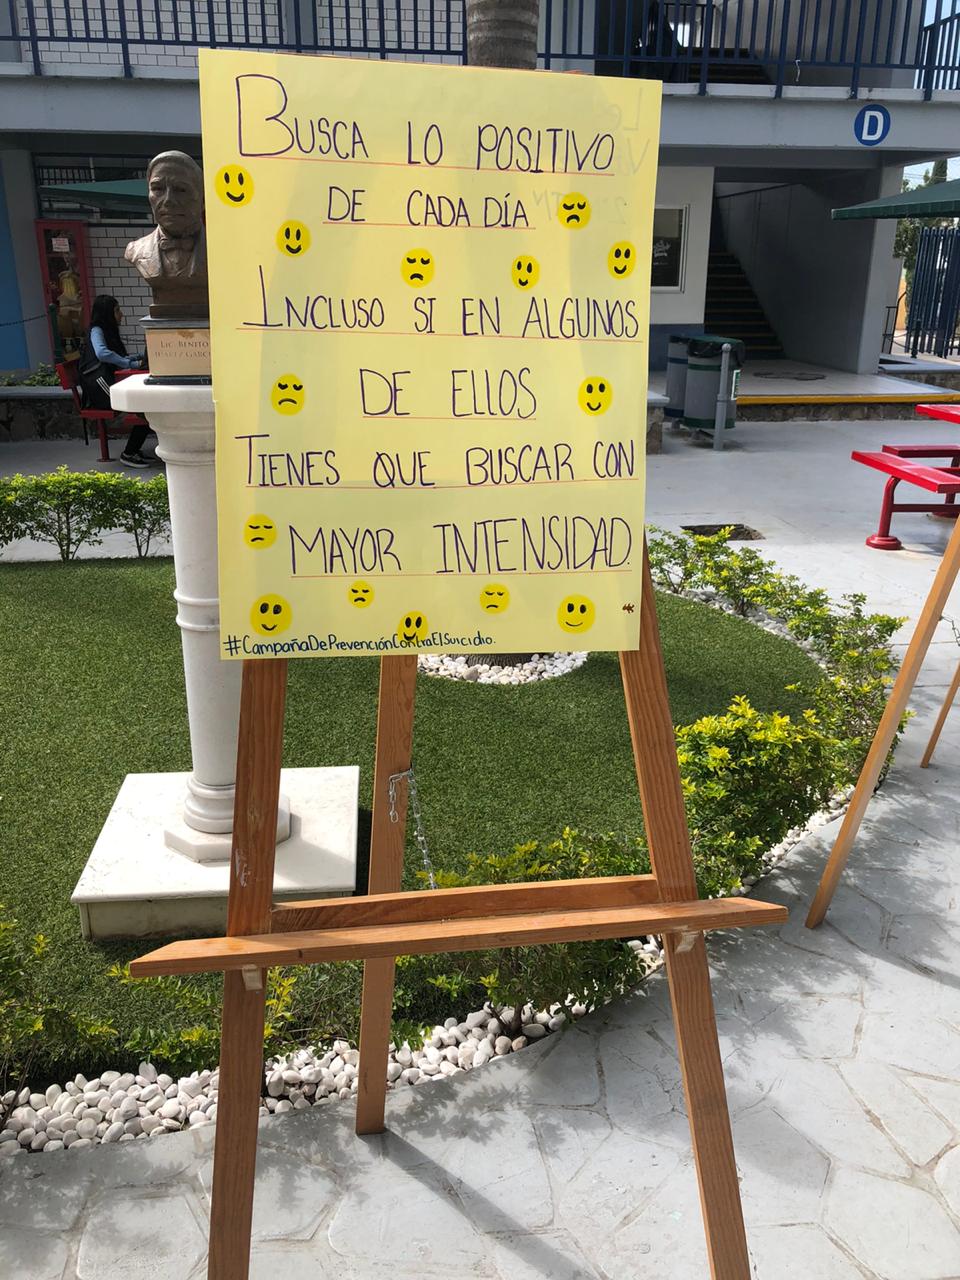 BUSCA LO POSITIVO
DE CADA DÍA
INCLUSO SI EN ALGUNOS
DE ELLOS
TIENES QUE BUSCAR CON
MAYOR INTENSIDAD.
#CampañaDePrevenciónContraElSuicidio.
LIC. BENITO
JUAREZ GARC
D